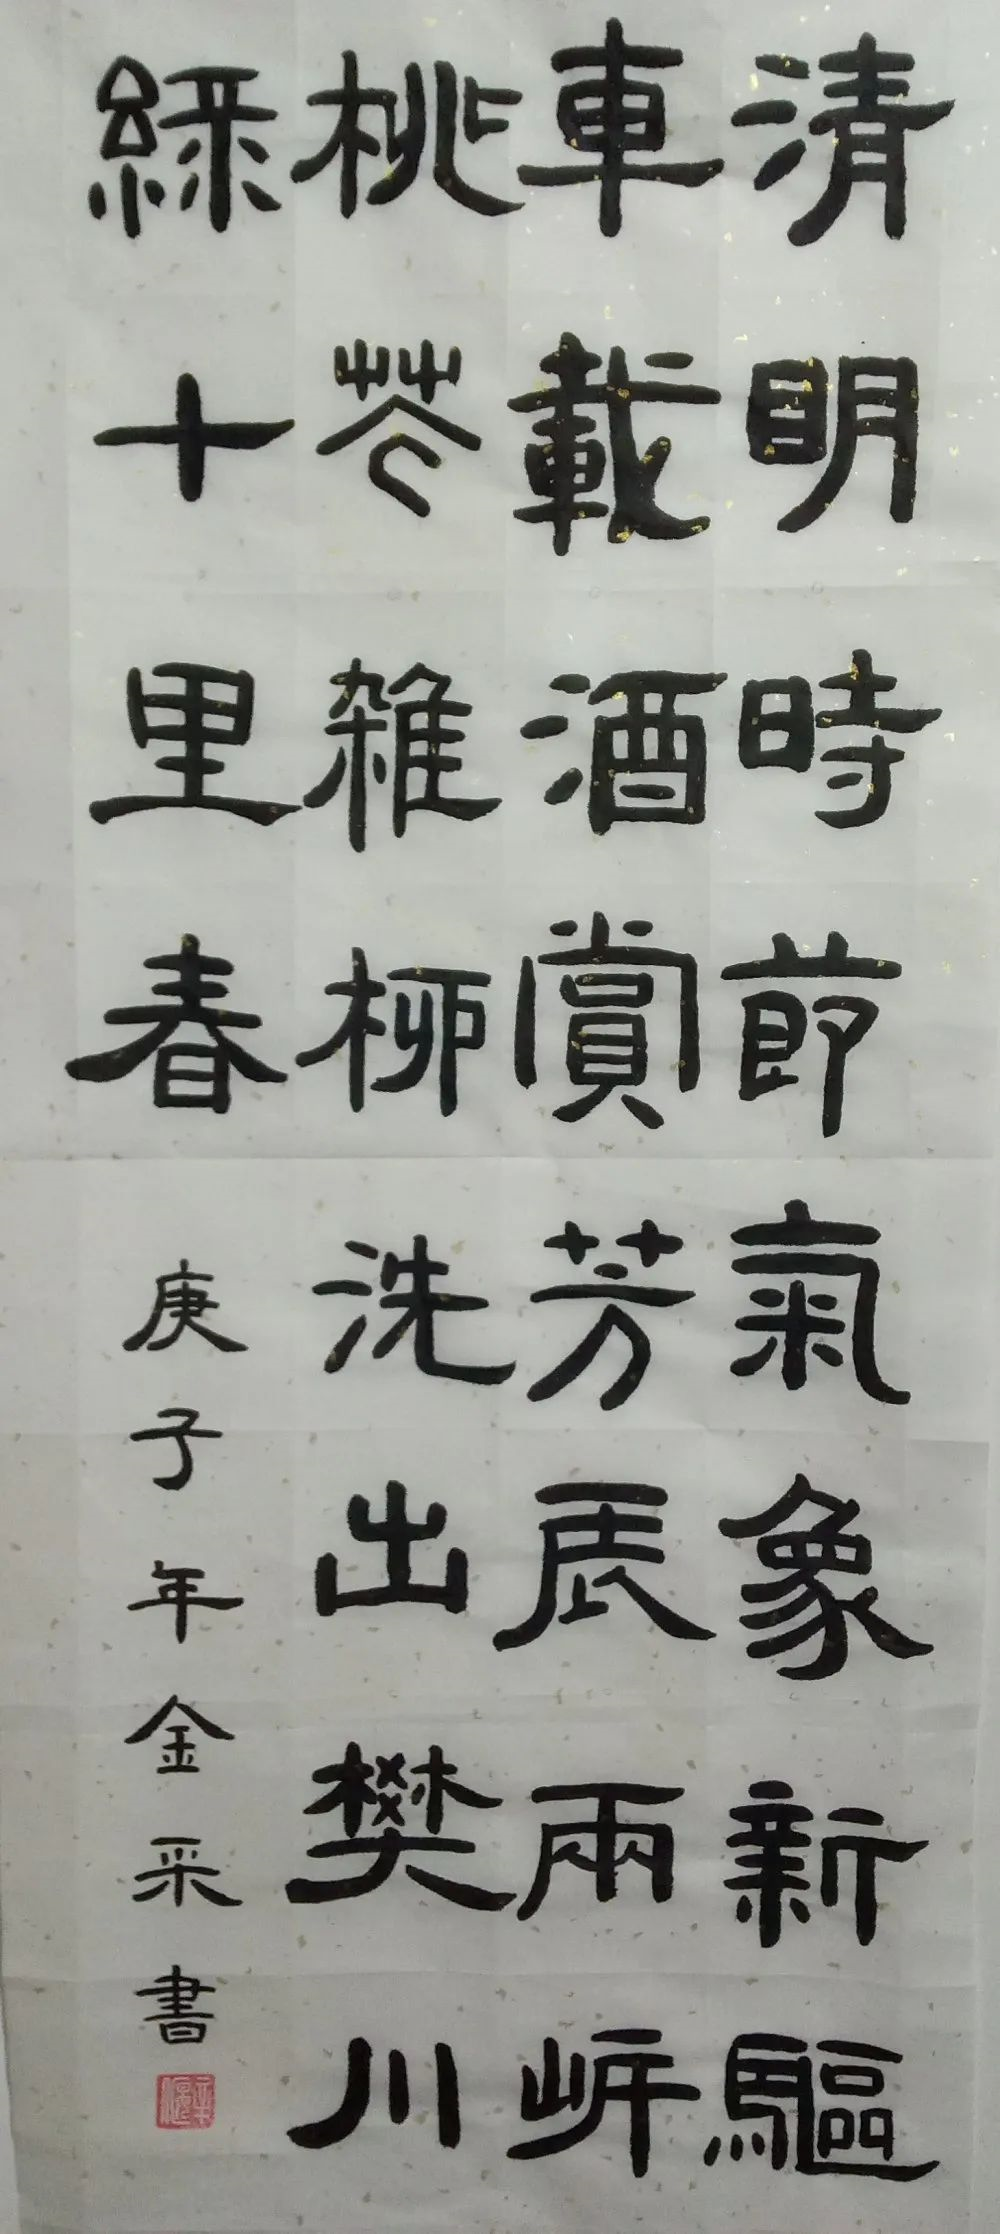 清明時節氣象新驅
車載酒賞芳辰兩岓
桃花雜柳洗出樊川
綠十里春
庚子年金采書